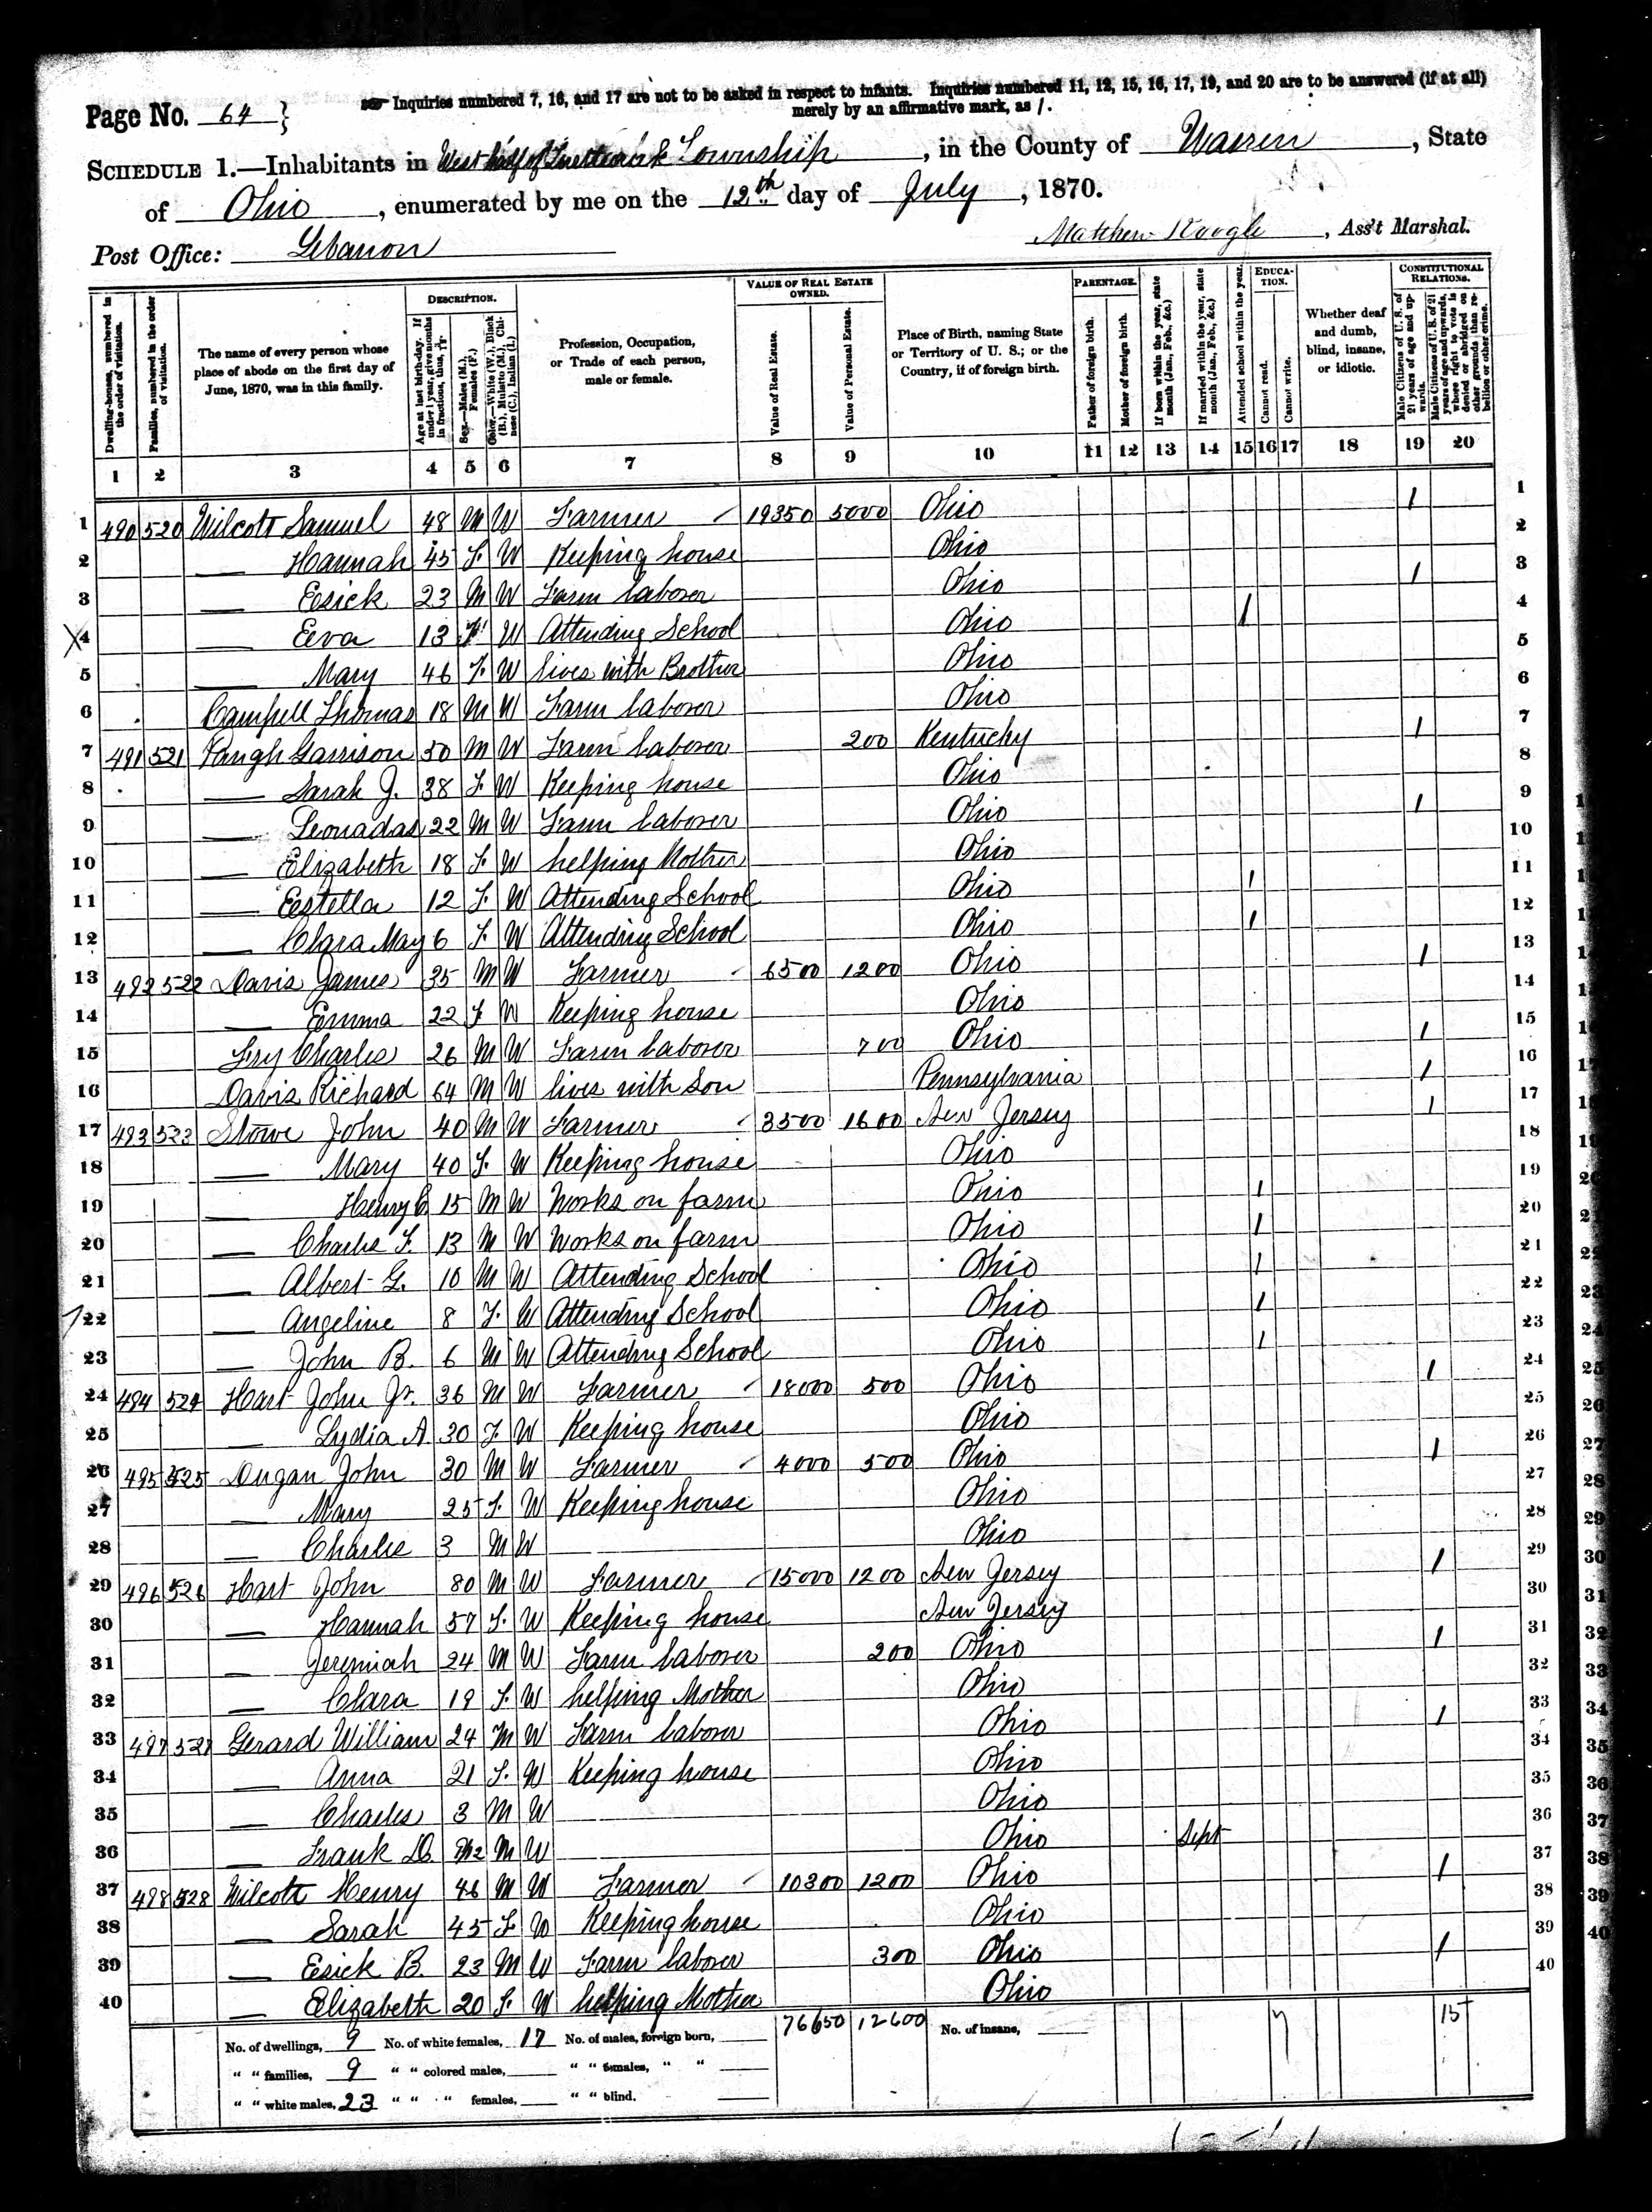 Page No. 64 }
Inquiries numbered 7, 16, and 17 are not to be asked in respect to infants. Inquiries numbered 11, 12, 15, 16, 17, 19, and 20 are to be answered (if at all)
merely by an affirmative mark, as /.
SCHEDULE 1.—Inhabitants in West half of Township, in the County of Warren, State
of Ohio, enumerated by me on the 12th day of July, 1870.
Post Office: Lebanon
Matthew, Ass't Marshal.
Dwelling-houses, numbered in the order of visitation.
Families, numbered in the order of visitation.
The name of every person whose place of abode on the first day of June, 1870, was in this family.
DESCRIPTION.
Age at last birth-day. If under 1 year, give months in fractions, thus,
Sex.—Males (M.), Females (F.)
Color.—White (W.), Black (B.), Mulatto (M.), Chinese (C.), Indian (I.)
Profession, Occupation, or Trade of each person, male or female.
VALUE OF REAL ESTATE OWNED.
Value of Real Estate.
Value of Personal Estate.
Place of Birth, naming State or Territory of U. S.; or the Country, if of foreign birth.
PARENTAGE.
Father of foreign birth.
Mother of foreign birth.
If born within the year, state month (Jan., Feb., &c.)
If married within the year, state month (Jan., Feb., &c.)
Attended school within the year.
EDUCATION.
Cannot read.
Cannot write.
Whether deaf and dumb, blind, insane, or idiotic.
CONSTITUTIONAL RELATIONS.
Male Citizens of U. S. of 21 years of age and upwards.
Male Citizens of U. S. of 21 years of age and upwards, whose right to vote is denied or abridged on other grounds than rebellion or other crime.
1 2 3 4 5 6 7 8 9 10 11 12 13 14 15 16 17 18 19 20
1 490 520 Wilcott Samuel 48 M W Farmer 19350 5000 Ohio / 1
2 — Hannah 45 F. W Keeping house Ohio 2
3 — Esick 23 M W Farm laborer Ohio / 3
X4 — Eeva 13 F W Attending School Ohio / 4
5 — Mary 46 F. W lives with Brother Ohio 5
6 Campell Thomas 18 M W Farm laborer Ohio 6
7 491 521 Paugh Garrison 50 M W Farm laborer 200 Kentucky / 7
8 — Sarah J. 38 F. W Keeping house Ohio 8
9 — Leonadas 22 M W Farm laborer Ohio / 9
10 — Elizabeth 18 F. W helping Mother Ohio 10
11 — Eestella 12 F. W Attending School Ohio / 11
12 — Clara May 6 F. W Attending School Ohio / 12
13 492 522 Davis James 35 M W Farmer 6500 1200 Ohio / 13
14 — Emma 22 F W Keeping house Ohio 14
15 Fry Charles 26 M W Farm laborer 700 Ohio / 15
16 Davis Richard 64 M W lives with Son Pennsylvania / 16
17 493 523 Stowe John 40 M W Farmer 3500 1600 New Jersey / 17
18 — Mary 40 F. W Keeping house Ohio 18
19 — Henry C. 15 M W Works on farm Ohio / 19
20 — Charles F. 13 M W Works on farm Ohio / 20
21 — Albert G. 10 M W Attending School Ohio / 21
22 — Angeline 8 F. W Attending School Ohio / 22
23 — John B. 6 M W Attending School Ohio / 23
24 494 524 Hart John Jr. 36 M W Farmer 18000 500 Ohio / 24
25 — Lydia A 30 F W Keeping house Ohio 25
26 495 525 Dugan John 30 M W Farmer 4000 500 Ohio / 26
27 — Mary 25 F. W Keeping house Ohio 27
28 — Charles 3 M W Ohio 28
29 496 526 Hart John 80 M W Farmer 15000 1200 New Jersey / 29
30 — Hannah 57 F. W Keeping house New Jersey 30
31 — Jeremiah 24 M W Farm laborer 200 Ohio / 31
32 — Clara 19 F. W helping Mother Ohio 32
33 497 527 Gerard William 24 M W Farm laborer Ohio / 33
34 — Anna 21 F. W Keeping house Ohio 34
35 — Charles 3 M W Ohio 35
36 — Frank D. M W Ohio Sept 36
37 498 528 Wilcott Henry 46 M W Farmer 10300 1200 Ohio / 37
38 — Sarah 45 F. W Keeping house Ohio 38
39 — Esick B. 23 M W Farm laborer 300 Ohio / 39
40 — Elizabeth 20 F. W helping Mother Ohio 40
No. of dwellings, 9 No. of white females, 17 No. of males, foreign born, 76650 12600 No. of insane, 15
" " families, 9 " " colored males, " " females, " "
" " white males, 23 " " " females, " " blind.